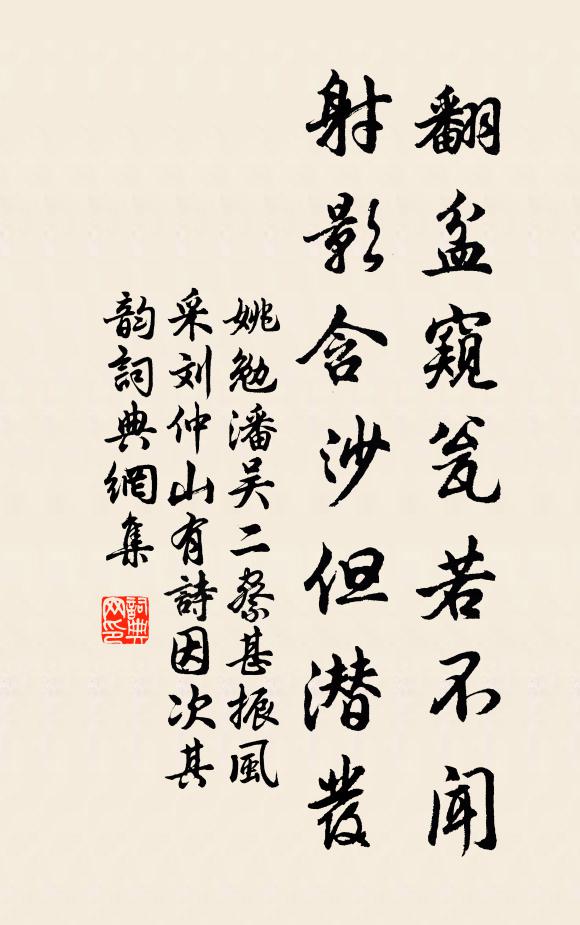 翻盆窺瓮若不聞
射影含沙但潜發
姚勉潘吴二察甚振風
采刘仲山有詩因次其
韵詞典網集
詞典网印